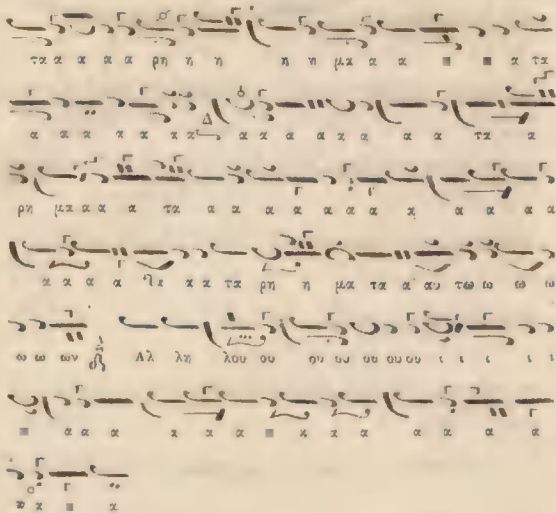 τα α α α α ρη η η η η μα α α α α α τα
α α α α α α α α α α α α α α α τα α
ρη μα α α α τα α α α α α α α α α α α α
α α α α λα α α τα ρη η μα τα α αυ τω ω ω ω
ω ω ων Αλ λη λου ου ου ου ου ου ου ι ι ι ι ι
α α α α α α α α α α α α α α α
α α α α